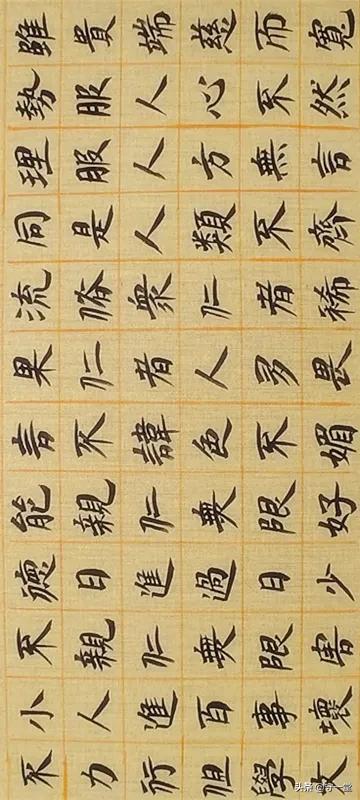 雖貴端慈而寬
勢服人心不然
理服人方無言
同是人類不齊
流俗衆仁者稀
果仁者人多畏
言不諱色不媚
能親仁無限好
德日進過日少
不親仁無限害
小人進百事壞
不力行但學文
头条